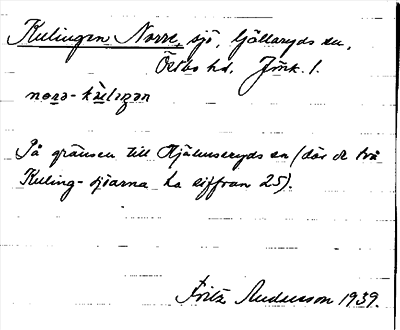 Kulingen Norre, sjö, Gällaryds sn,
Östbo hd. Jönk. l.
På gränsen till Hjälmseryds sn (där de två
Kuling-sjöarna ha siffran 25).
Fritz Andersson 1939.